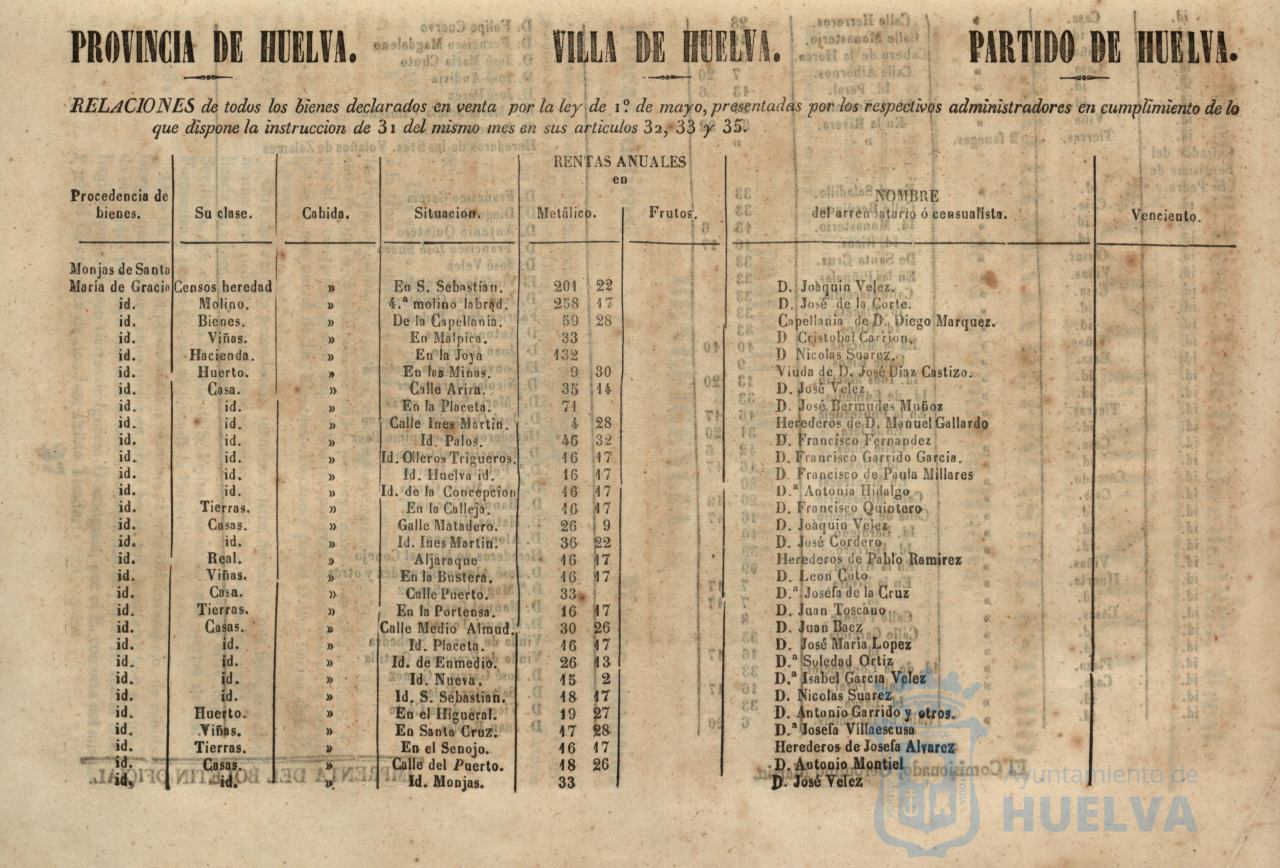 PROVINCIA DE HUELVA. VILLA DE HUELVA. PARTIDO DE HUELVA.
RELACIONES de todos los bienes declarados en venta por la ley de 1º de mayo, presentadas por los respectivos administradores en cumplimiento de lo
que dispone la instruccion de 31 del mismo mes en sus articulos 32, 33 y 35.
RENTAS ANUALES
en
Procedencia de bienes. Su clase. Cabida. Situacion. Metálico. Frutos. NOMBRE del arrendatario ó censualista. Venciento.
Monjas de Santa
Maria de Gracia Censos heredad » En S. Sebastian. 201 22 D. Joaquin Velez.
id. Molino. » 4.ª molino labrad. 258 17 D. José de la Corte.
id. Bienes. » De la Capellania. 59 28 Capellania de D. Diego Marquez.
id. Viñas. » En Malpica. 33 D Cristobal Carrion.
id. Hacienda. » En la Joya 132 D Nicolas Suarez.
id. Huerto. » En las Minas. 9 30 Viuda de D. José Diaz Castizo.
id. Casa. » Calle Ariza. 35 14 D. José Velez.
id. id. » En la Placeta. 71 D. José Bermudes Muñoz
id. id. » Calle Ines Martin. 4 28 Herederos de D. Manuel Gallardo
id. id. » Id. Palos. 46 32 D. Francisco Fernandez
id. id. » Id. Olleros Trigueros. 16 17 D. Francisco Garrido Garcia.
id. id. » Id. Huelva id. 16 17 D. Francisco de Paula Millares
id. id. » Id. de la Concepcion 16 17 D.ª Antonia Hidalgo
id. Tierras. » En la Calleja. 16 17 D. Francisco Quintero
id. Casas. » Galle Matadero. 26 9 D. Joaquin Velez
id. id. » Id. Ines Martin. 36 22 D. José Cordero
id. Real. » Aljaraque 16 17 Herederos de Pablo Ramirez
id. Viñas. » En la Bustera. 16 17 D. Leon Coto
id. Casa. » Calle Puerto. 33 D.ª Josefa de la Cruz
id. Tierras. » En la Portensa. 16 17 D. Juan Toscano
id. Casas. » Calle Medio Almud. 30 26 D. Juan Baez
id. id. » Id. Placeta. 16 17 D. José Maria Lopez
id. id. » Id. de Enmedio. 26 13 D.ª Soledad Ortiz
id. id. » Id. Nueva. 15 2 D.ª Isabel Garcia Velez
id. id. » Id. S. Sebastian. 18 17 D. Nicolas Suarez
id. Huerto. » En el Higueral. 19 27 D. Antonio Garrido y otros.
id. Viñas. » En Santa Cruz. 17 28 D.ª Josefa Villaescusa
id. Tierras. » En el Senojo. 16 17 Herederos de Josefa Alvarez
id. Casas. » Calle del Puerto. 18 26 D. Antonio Montiel
id. id. » Id. Monjas. 33 D. José Velez
Ayuntamiento de
HUELVA